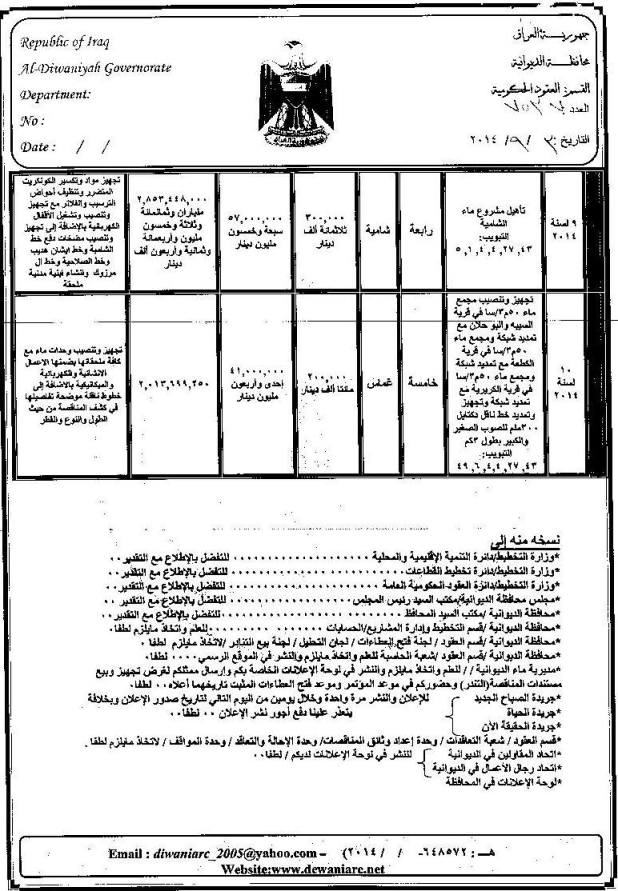 Republic of Iraq
Al-Diwaniyah Governorate
Department:
No :
Date :    /    /
جمهورية العراق
محافظة الديوانية
القسم: العقود الحكومية
العدد
التاريخ: ٣٠ / ٩ / ٢٠١٤
٩ لسنة
٢٠١٤
تأهيل مشروع ماء
الشامية
التبويب:
٤٣,٢٧,٤,٤,٦,٥
رابعة
شامية
٣٠٠,٠٠٠
ثلاثمائة ألف
دينار
٥٧,٠٠٠,٠٠٠
سبعة وخمسون
مليون دينار
٢,٨٥٣,٤٤٨,٠٠٠
ملياران وثمانمائة
وثلاثة وخمسون
مليون وأربعمائة
وثمانية وأربعون الف
دينار
تجهيز مواد وتكسير الكونكريت
المتضرر وتنظيف أحواض
الترسيب والفلاتر مع تجهيز
وتنصيب وتشغيل الأقفال
الكهربائية بالإضافة إلى تجهيز
وتنصيب مضخات دفع خط
الشامية وخط ايشان هديب
وخط الصلاحية وخط ال
مرزوك وانشاء ابنية مدنية
ملحقة
١٠
لسنة
٢٠١٤
تجهيز وتنصيب مجمع
ماء ٥٠م٣/سا في قرية
السيبه والبو حلان مع
تمديد شبكة ومجمع ماء
٥٠م٣/سا في قرية
الكطعة مع تمديد شبكة
ومجمع ماء ٥٠م٣/سا
في قرية الكريرية مع
تمديد شبكة وتجهيز
وتمديد خط ناقل دكتايل
٣٠٠ملم للصوب الصغير
والكبير بطول ٣كم
التبويب:
٤٣,٢٧,٤,٤,٦,٤٩
خامسة
غماس
٢٠٠,٠٠٠
مائتا ألف دينار
٤١,٠٠٠,٠٠٠
إحدى وأربعون
مليون دينار
٢,٠١٣,٦٩٩,٢٥٠
تجهيز وتنصيب وحدات ماء مع
كافة ملحقاتها بضمنها الاعمال
الانشائية والكهربائية
والميكانيكية بالاضافة إلى
خطوط ناقلة موضحة تفاصيلها
في كشف المناقصة من حيث
الطول والنوع والقطر
نسخه منه إلى
*وزارة التخطيط/دائرة التنمية الإقليمية والمحلية ................ للتفضل بالإطلاع مع التقدير٠٠
*وزارة التخطيط/دائرة تخطيط القطاعات ................ للتفضل بالإطلاع مع التقدير٠٠
*وزارة التخطيط/دائرة العقود الحكومية العامة ................ للتفضل بالإطلاع مع التقدير٠٠
*مجلس محافظة الديوانية/مكتب السيد رئيس المجلس ................ للتفضل بالإطلاع مع التقدير٠٠
*محافظة الديوانية /مكتب السيد المحافظ ................ للتفضل بالإطلاع مع التقدير٠٠
*محافظة الديوانية /قسم التخطيط وإدارة المشاريع/الحسابات ................ للعلم واتخاذ مايلزم لطفا٠
*محافظة الديوانية /قسم العقود / لجنة فتح العطاءات / لجان التحليل / لجنة بيع التنادر /لاتخاذ مايلزم لطفا٠
*محافظة الديوانية /قسم العقود /شعبة الحاسبة للعلم واتخاذ مايلزم والنشر في الموقع الرسمي٠٠٠٠ لطفا٠
*مديرية ماء الديوانية / / للعلم واتخاذ مايلزم والنشر في لوحة الإعلانات الخاصة بكم وإرسال ممثلكم لغرض تجهيز وبيع
مستندات المناقصة(التندر) وحضوركم في موعد المؤتمر وموعد فتح العطاءات المثبت تاريخهما أعلاه٠٠ لطفا٠
*جريدة الصباح الجديد
*جريدة الحياة
*جريدة الحقيقة الأن
للإعلان والنشر مرة واحدة وخلال يومين من اليوم التالي لتاريخ صدور الإعلان وبخلافة
يتعذر علينا دفع أجور نشر الإعلان ٠٠ لطفا٠٠
*قسم العقود / شعبة التعاقدات / وحدة إعداد وثائق المناقصات/ وحدة الإحالة والتعاقد / وحدة المواقف / لاتخاذ مايلزم لطفا٠
*اتحاد المقاولين في الديوانية
*اتحاد رجال الأعمال في الديوانية
*لوحة الإعلانات في المحافظة
للنشر في لوحة الإعلانات لديكم / لطفا٠٠
Email : diwaniarc_2005@yahoo.com – (٢٠١٤ /   /   -٦٤٨٥٧٢ :هـ
Website:www.dewaniarc.net